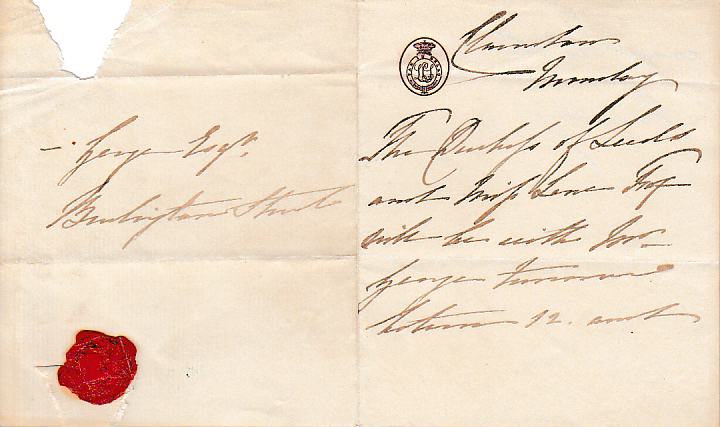 — George Esqr.
Burlington Street
Monday
The Duchess of Leeds
and Miss Lane Fox
will be with Mr.
George Tomorrow
between 12. and